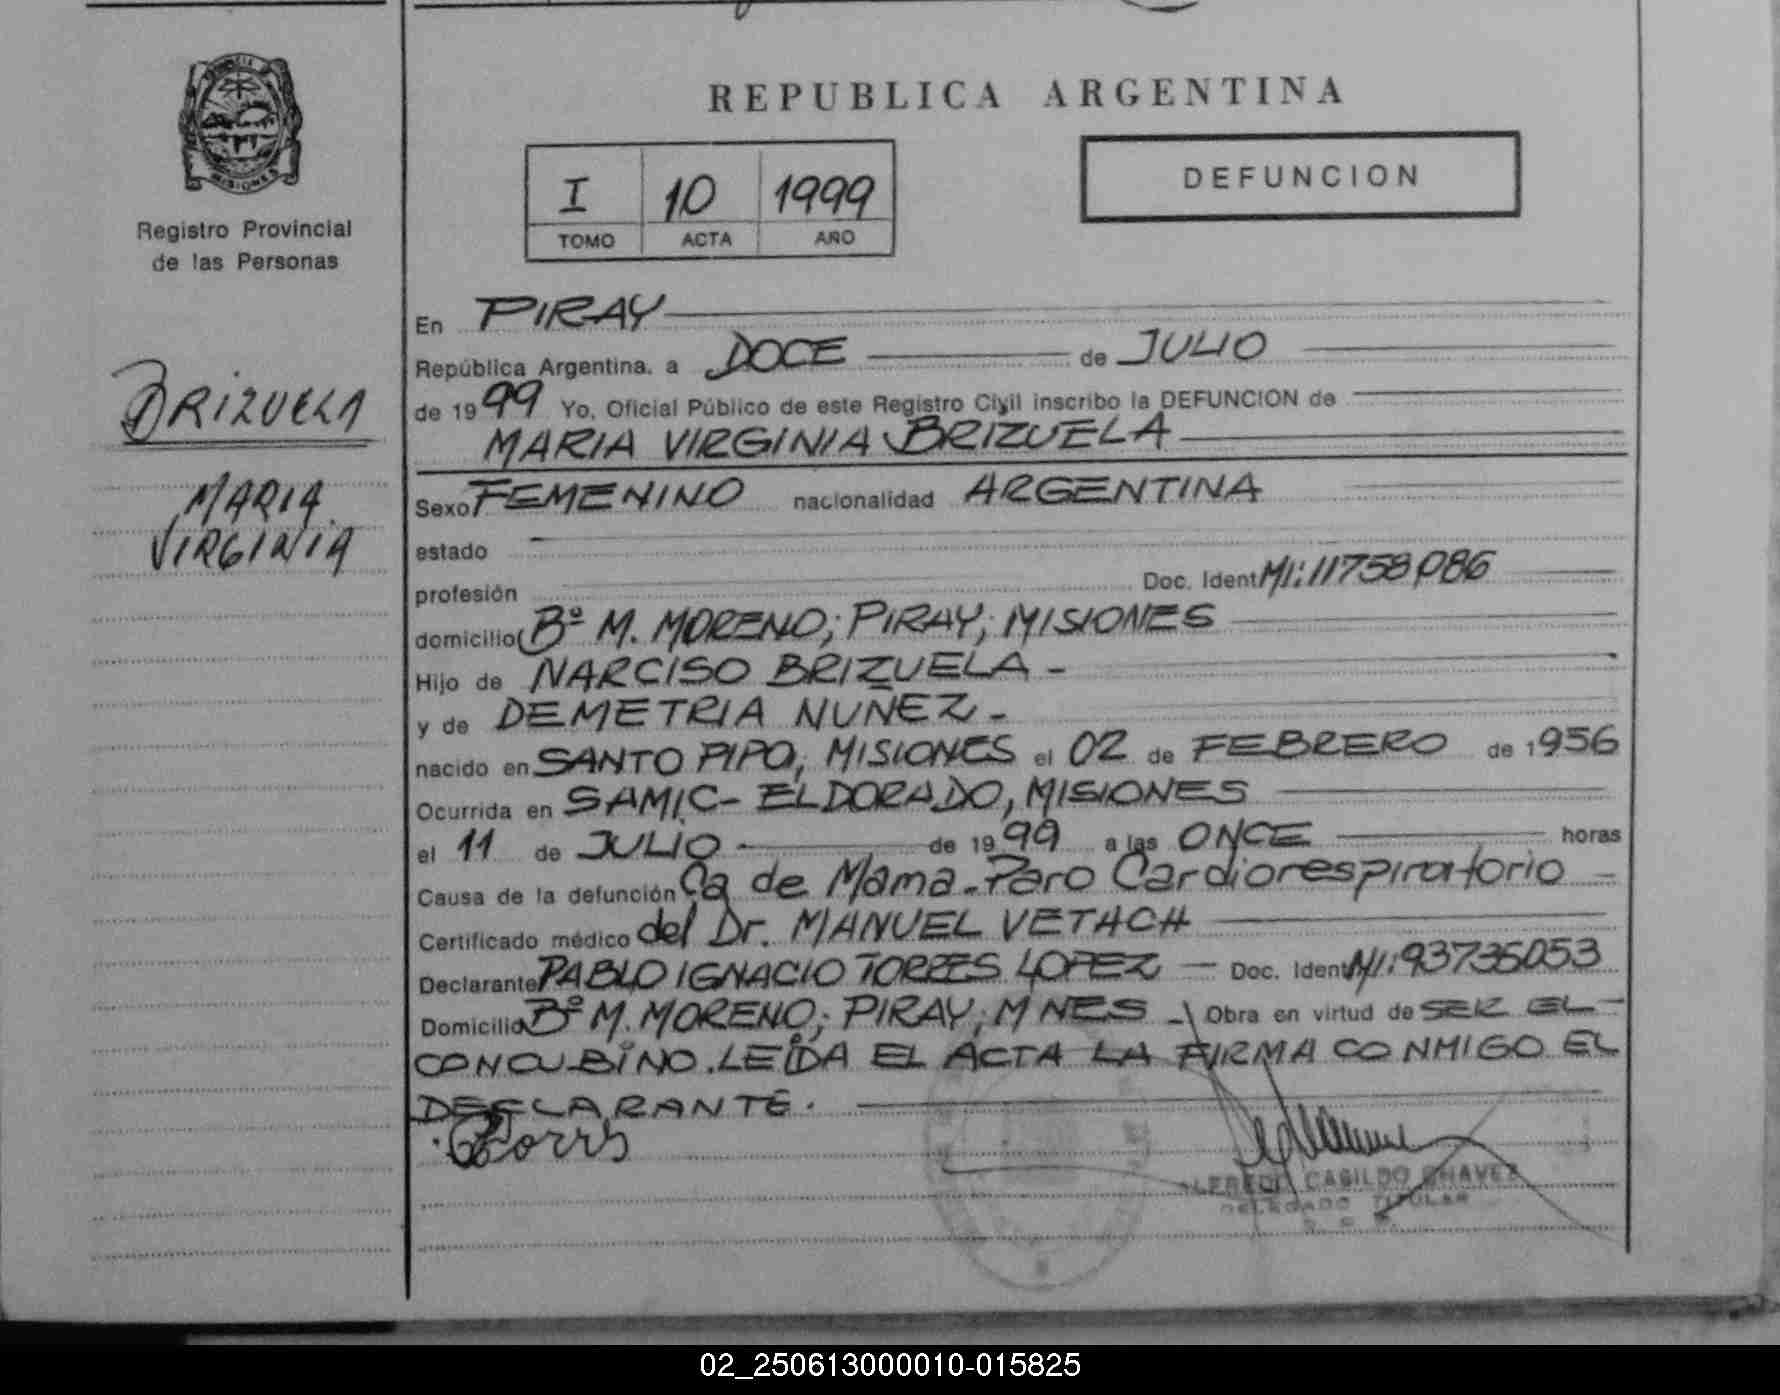 PROVINCIA DE
MISIONES
Registro Provincial
de las Personas
BRIZUELA
MARIA
VIRGINIA
REPUBLICA ARGENTINA
I 10 1999
TOMO ACTA AÑO
DEFUNCION
En PIRAY
República Argentina, a DOCE de JULIO
de 1999 Yo, Oficial Público de este Registro Civil inscribo la DEFUNCION de
MARIA VIRGINIA BRIZUELA
Sexo FEMENINO nacionalidad ARGENTINA
estado
profesión Doc. Ident MI: 11758086
domicilio Bº M. MORENO; PIRAY; MISIONES
Hijo de NARCISO BRIZUELA -
y de DEMETRIA NUÑEZ -
nacido en SANTO PIPO, MISIONES el 02 de FEBRERO de 1956
Ocurrida en SAMIC- ELDORADO, MISIONES
el 11 de JULIO - de 1999 a las ONCE horas
Causa de la defunción Ca de Mama - Paro Cardiorespiratorio -
Certificado médico del Dr. MANUEL VETACH
Declarante PABLO IGNACIO TORRES LOPEZ - Doc. Ident MI: 93735053
Domicilio Bº M. MORENO; PIRAY; MNES - Obra en virtud de SER EL -
CONCUBINO. LEIDA EL ACTA LA FIRMA CONMIGO EL
DECLARANTE.
ALFREDO CASILDO CHAVEZ
DELEGADO TITULAR
02_250613000010-015825